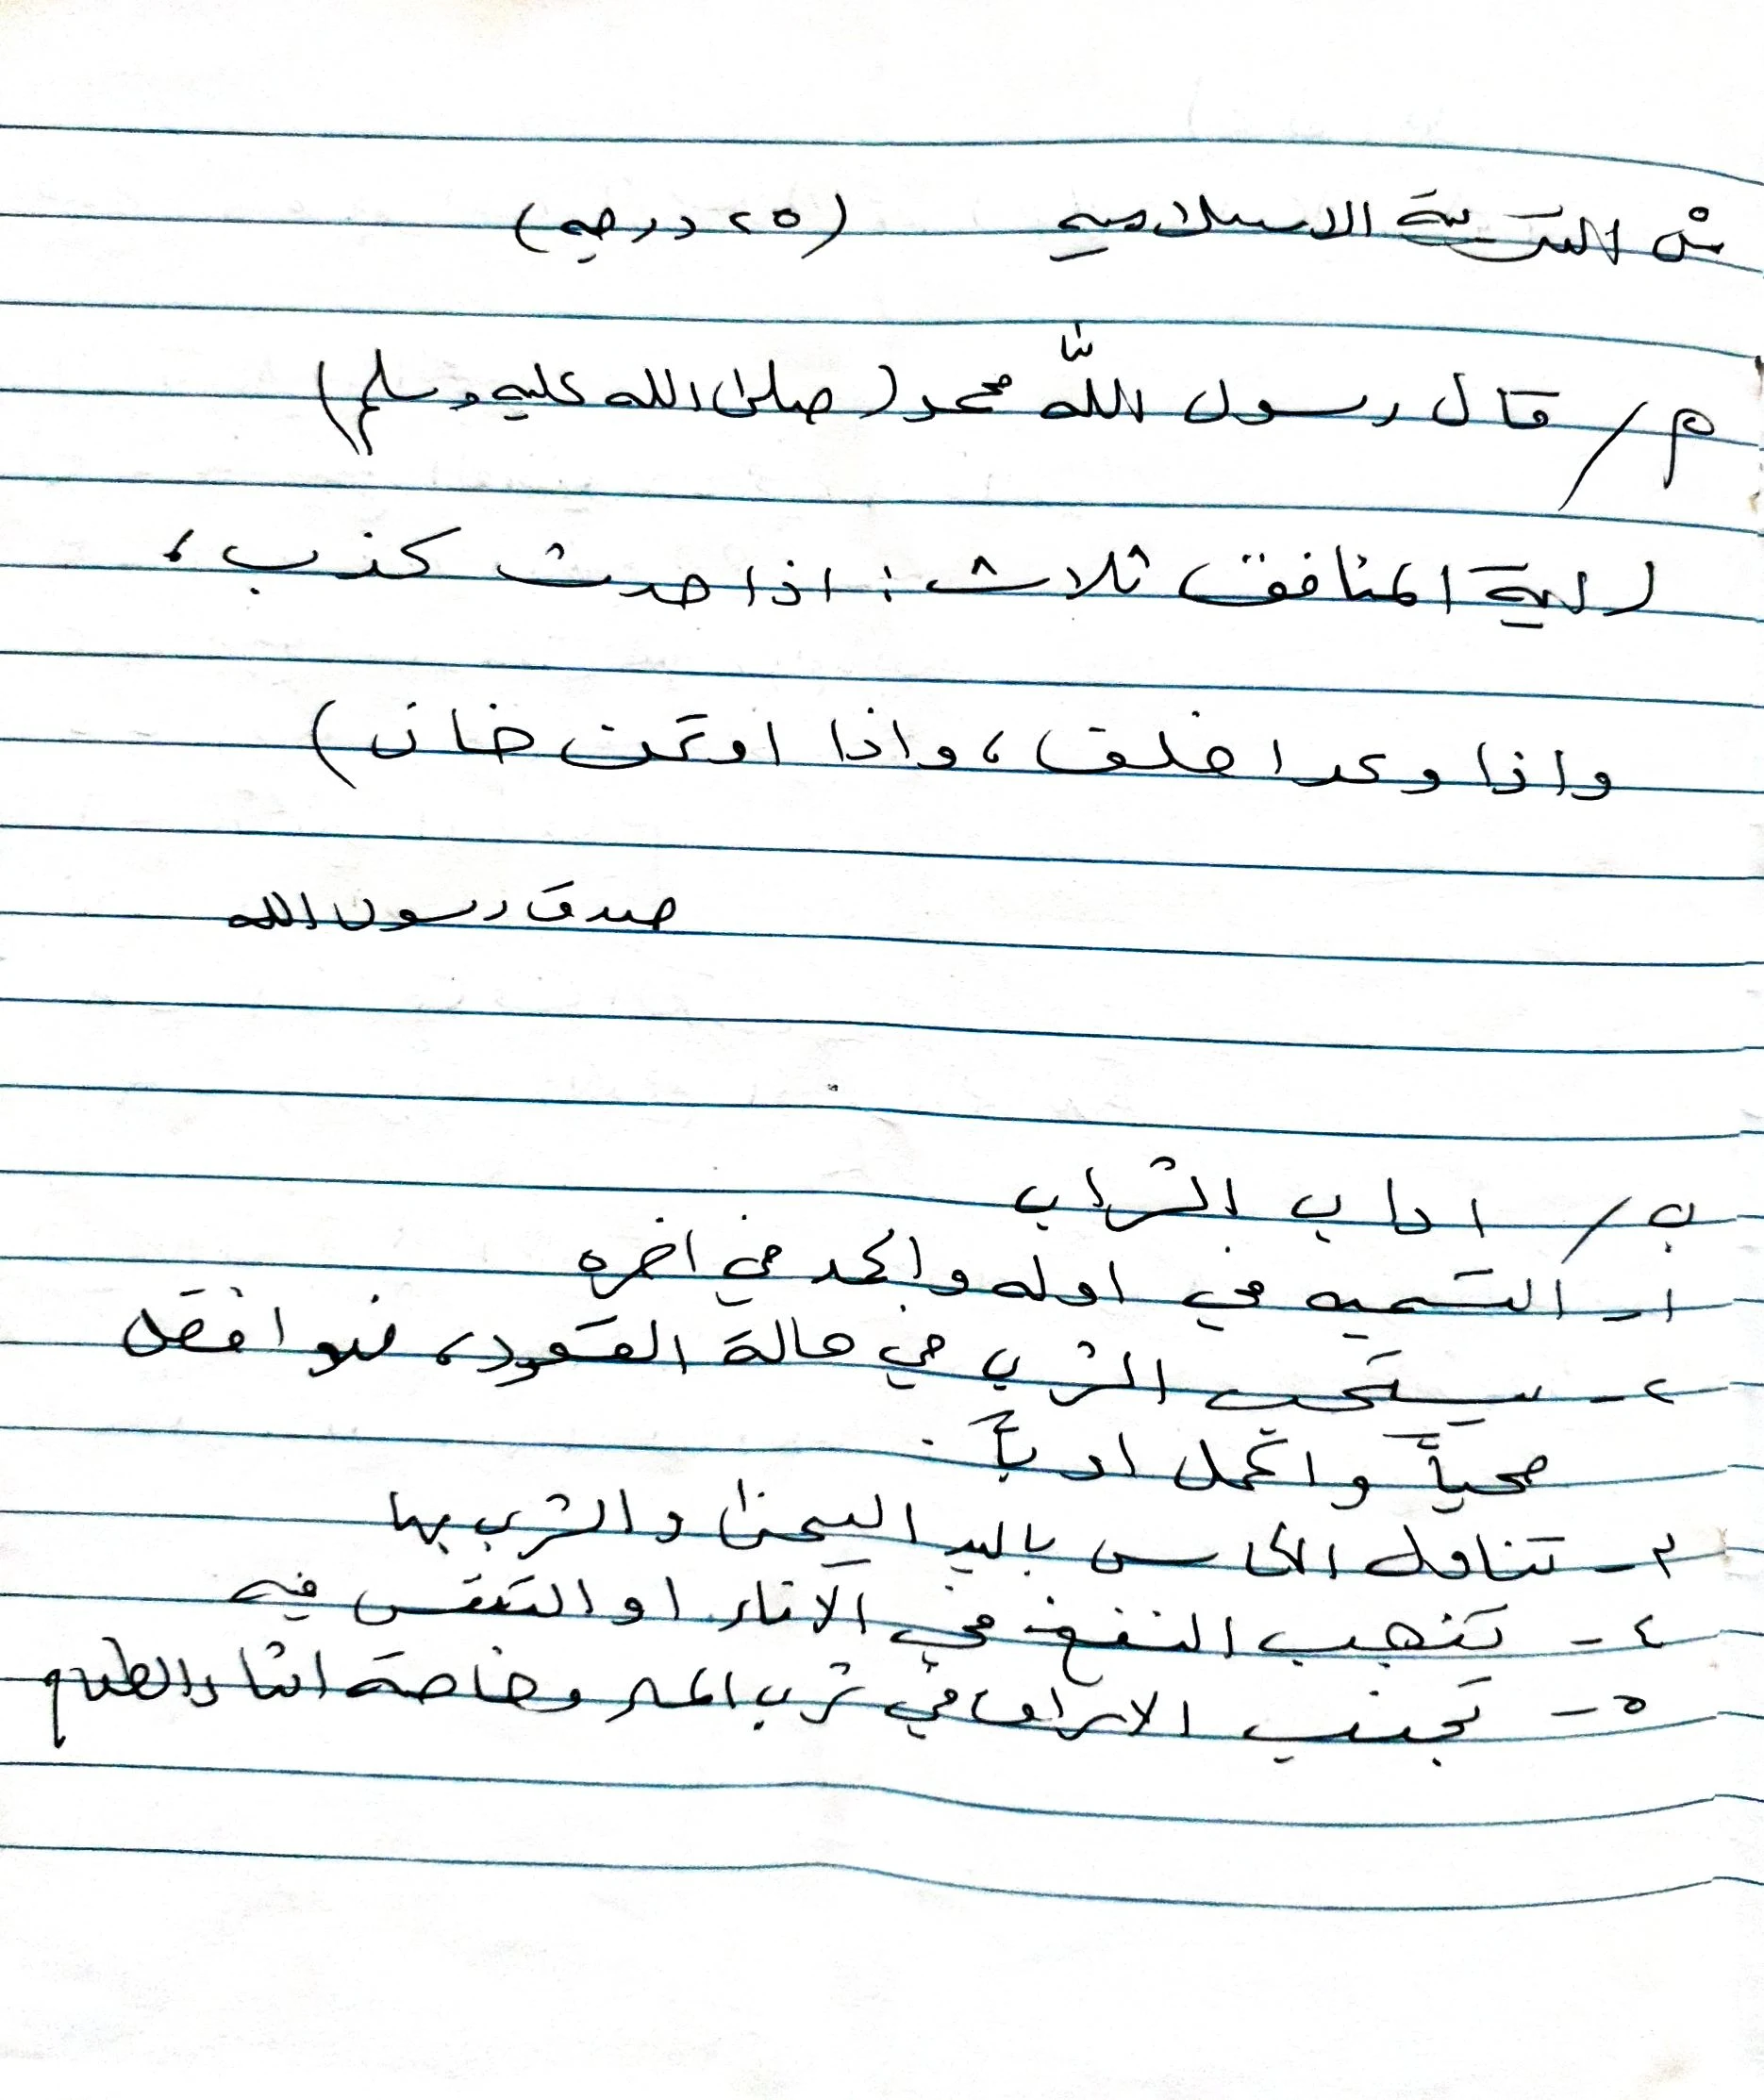 س التربية الاسلاميه (٢٥ درجه)
م/ قال رسول الله محمد (صلى الله عليه وسلم)
(اية المنافق ثلاث: اذا حدث كذب،
واذا وعد اخلف، واذا اوتمن خان)
صدق رسول الله
ب/ اداب الشراب
١- التسميه في اوله والحمد في اخره
٢- يستحب الشرب في حالة القعود، فهو افضل
صحياً واكمل ادباً.
٣- تناول الكاس باليد اليمنى والشرب بها
٤- تجنب النفخ في الاناء او التنفس فيه
٥- تجنب الاسراف في شرب الماء وخاصة اثناء الطعام